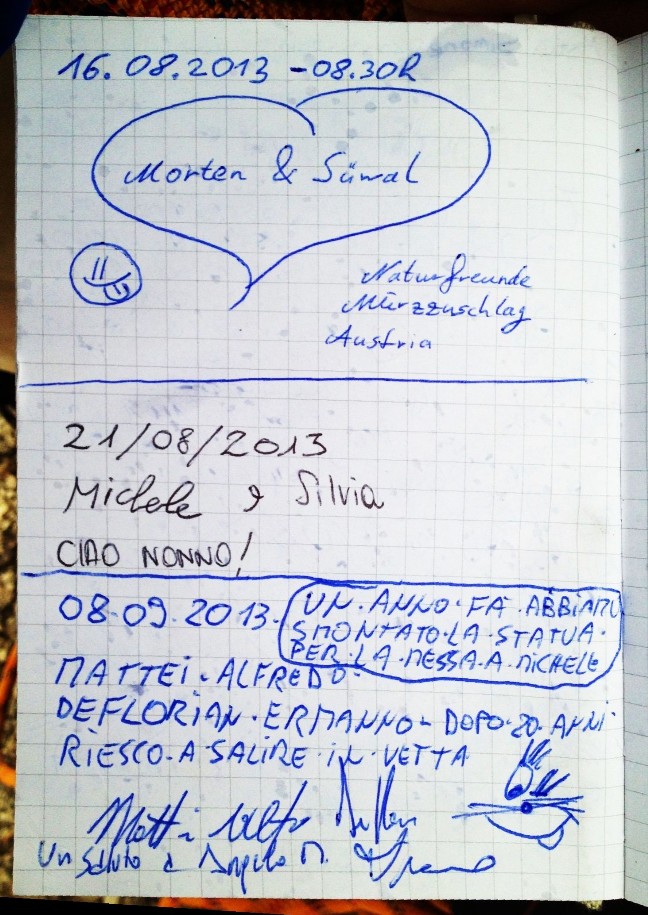 16.08.2013 - 08.30h
Morten & Sünval
Naturfreunde
Mürzzuschlag
Austria
21/08/2013
Michele e Silvia
CIAO NONNO!
08.09.2013.
UN. ANNO. FA. ABBIAMO
SMONTATO. LA STATUA.
PER. LA. MESSA. A. MICHELE
MATTEI. ALFREDO.
DEFLORIAN. ERMANNO - DOPO. 20. ANNI.
RIESCO. A. SALIRE. IN. VETTA
Un saluto a Angelo M.